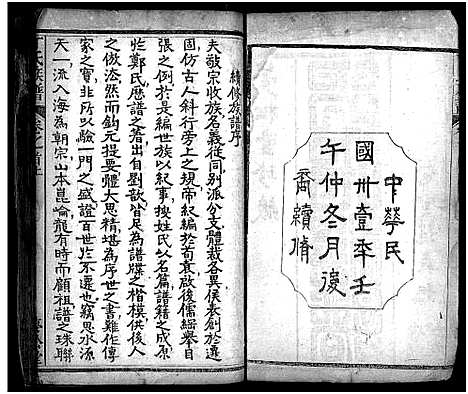 中華民
國卅壹年壬
午仲冬月後
裔續脩
續修族譜序
夫敬宗收族名義從同別派分文體裁各異侯表創於遷
固仿古人斜行旁上之規帝紀編於荀袁啟後儒綱舉目
張之例於是編世族以紀事換姓氏以名篇譜籍之成原
於鄭氏厯譜之著出自劉歆皆足為譜牒之楷模供後人
之倣流然而鈎元提要體大思精堪為序世之書難作傳
家之寶非所以驗一門之盛證百世於不遷也竊思水源
天一流入海為朝宗山本崑崙龍有時而顧祖譜之珠聯
氏族譜